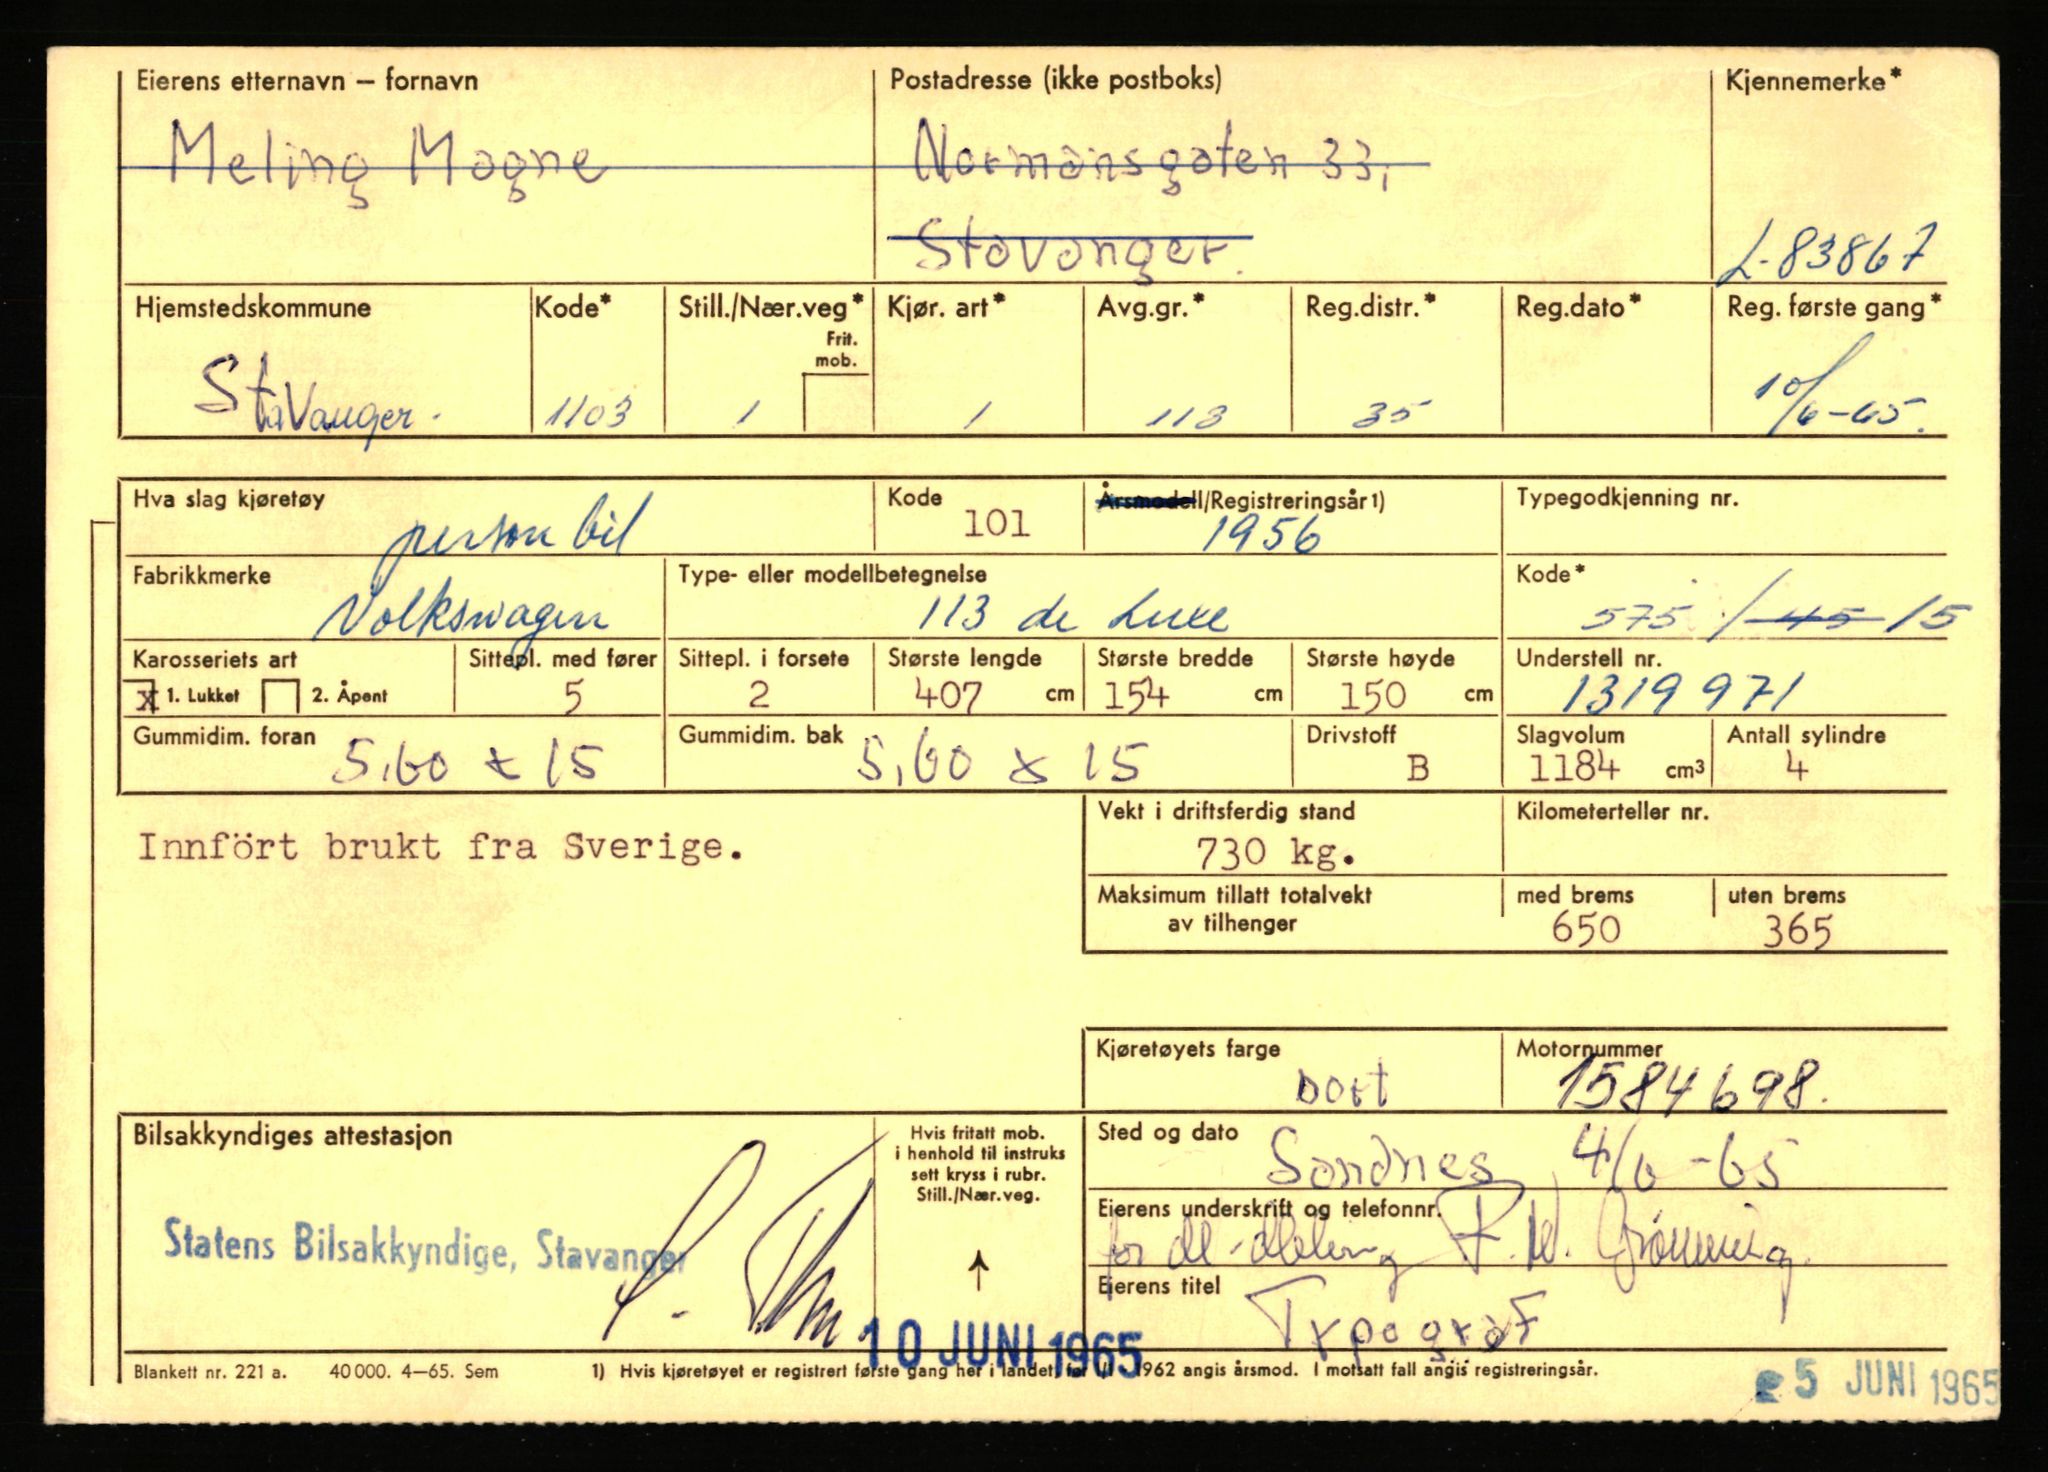 Eierens etternavn – fornavn Postadresse (ikke postboks) Kjennemerke*
Meling Magne Normansgaten 33,
Stavanger. L-83867
Hjemstedskommune Kode* Still./Nær.veg* Kjør. art* Avg.gr.* Reg.distr.* Reg.dato* Reg. første gang*
Frit.
mob.
Stavanger. 1103 1 1 113 35 10/6-65.
Hva slag kjøretøy Kode Årsmodell/Registreringsår 1) Typegodkjenning nr.
personbil 101 1956
Fabrikkmerke Type- eller modellbetegnelse Kode*
Volkswagen 113 de Luxe 575 / 45 15
Karosseriets art Sittepl. med fører Sittepl. i forsete Største lengde Største bredde Største høyde Understell nr.
x 1. Lukket 2. Åpent 5 2 407 cm 154 cm 150 cm 1319 971
Gummidim. foran Gummidim. bak Drivstoff Slagvolum Antall sylindre
5,60 x 15 5,60 x 15 B 1184 cm3 4
Vekt i driftsferdig stand Kilometerteller nr.
Innfört brukt fra Sverige. 730 kg.
Maksimum tillatt totalvekt med brems uten brems
av tilhenger 650 365
Kjøretøyets farge Motornummer
sort 1584698.
Bilsakkyndiges attestasjon Hvis fritatt mob.
i henhold til instruks
sett kryss i rubr.
Still./Nær.veg.
Sted og dato
Sandnes 4/6-65
Eierens underskrift og telefonnr.
for M. Meling P.W. Grønning.
Statens Bilsakkyndige, Stavanger
Eierens titel
Typograf
10 JUNI 1965
Blankett nr. 221 a. 40 000. 4–65. Sem 1) Hvis kjøretøyet er registrert første gang her i landet før 1/1 1962 angis årsmod. I motsatt fall angis registreringsår.
5 JUNI 1965